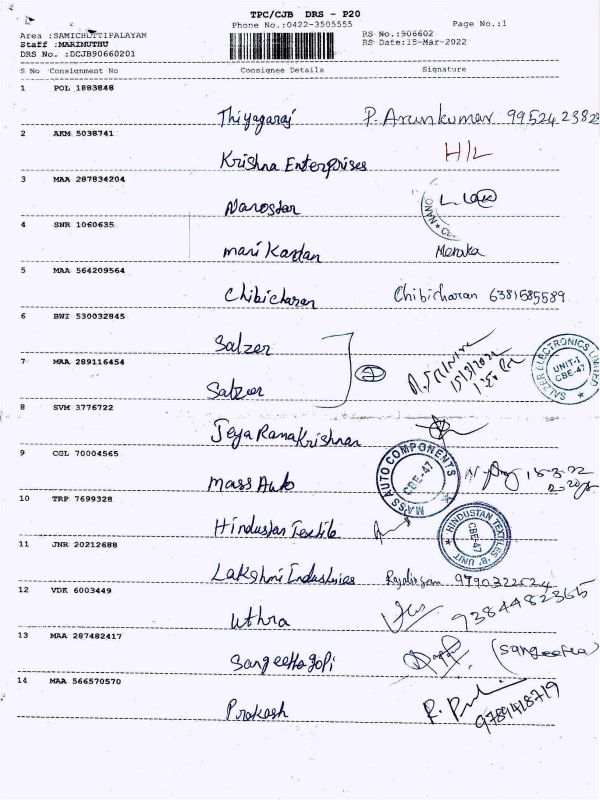 TPC/CJB DRS - P20
Phone No.:0422-3505555
Page No.:1
Area :SAMICHETTIPALAYAM
Staff :MARIMUTHU
DRS No. :DCJB90660201
RS No.:906602
RS Date:15-Mar-2022
S No Consignment No Consignee Details Signature
1 POL 1883848
Thiyagaraj P. Arunkumar 99524 23823
2 AKM 5038741
Krishna Enterprises H/L
3 MAA 287834204
Nanostar
4 SNR 1060635
mari Kardan Menaka
5 MAA 564209564
Chibicharan Chibicharan 6381585589
6 BWI 530032845
Salzer
7 MAA 289116454
Salzer 15/3/2022
SALZER ELECTRONICS LIMITED
UNIT-1
CBE-47
8 SVM 3776722
Jeya Rama Krishnan
9 CGL 70004565
Mass Auto 15-3-22
MASS AUTO COMPONENTS
CBE-47
10 TRP 7699328
Hindustan Textile
HINDUSTAN TEXTILES 'B' UNIT
CBE-47
11 JNR 20212688
Lakshmi Industries 9790322524
12 VDK 6003449
Uthra 9384482365
13 MAA 287482417
Sangeetha gopi (Sangeetha)
14 MAA 566570570
Prakash 9789418719